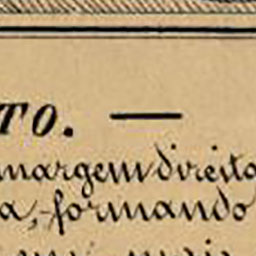 TO. —
margem direita
a, formando
mais